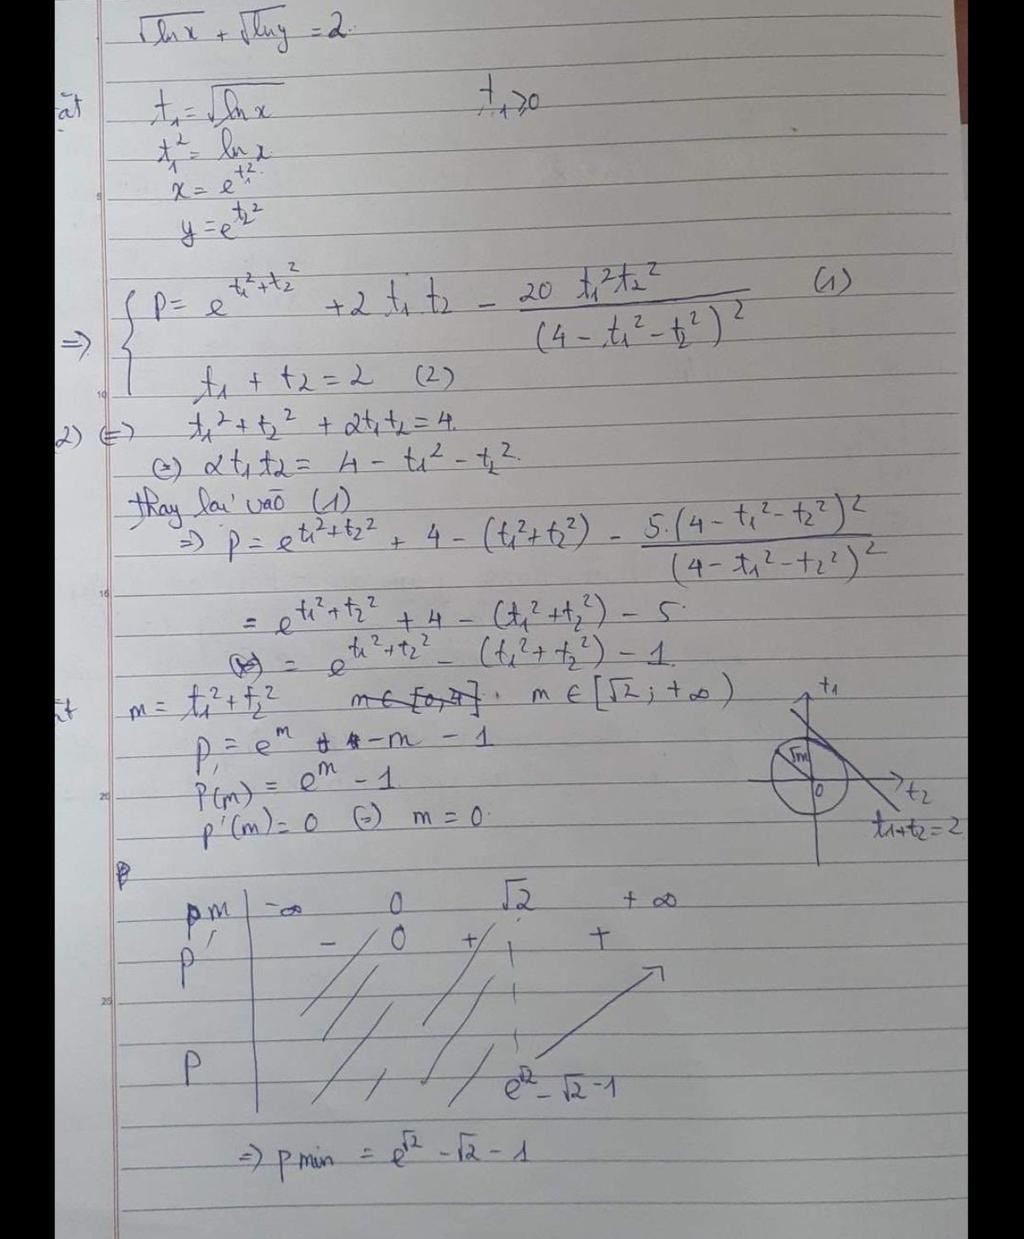 √ln x + √ln y = 2.
ặt t₁ = √ln x t₁ ≥ 0
t₁² = ln x
x = e^{t₁²}
y = e^{t₂²}
⇒ { P = e^{t₁² + t₂²} + 2 t₁ t₂ - \frac{20 t₁² t₂²}{(4 - t₁² - t₂²)²} (1)
t₁ + t₂ = 2 (2)
2) ⇔ t₁² + t₂² + 2t₁t₂ = 4.
⇔ 2t₁t₂ = 4 - t₁² - t₂².
thay lại vào (1)
⇒ P = e^{t₁² + t₂²} + 4 - (t₁² + t₂²) - \frac{5.(4 - t₁² - t₂²)²}{(4 - t₁² - t₂²)²}
= e^{t₁² + t₂²} + 4 - (t₁² + t₂²) - 5
= e^{t₁² + t₂²} - (t₁² + t₂²) - 1
ặt m = t₁² + t₂² m ∈ [0,4]. m ∈ [√2; +∞)
P = e^m - m - 1
P'(m) = e^m - 1
P'(m) = 0 ⇔ m = 0.
t₁
√m
0
t₂
t₁+t₂=2
m -∞ 0 √2 +∞
P' - 0 + +
P e^{√2} - √2 - 1
⇒ P min = e^{√2} - √2 - 1